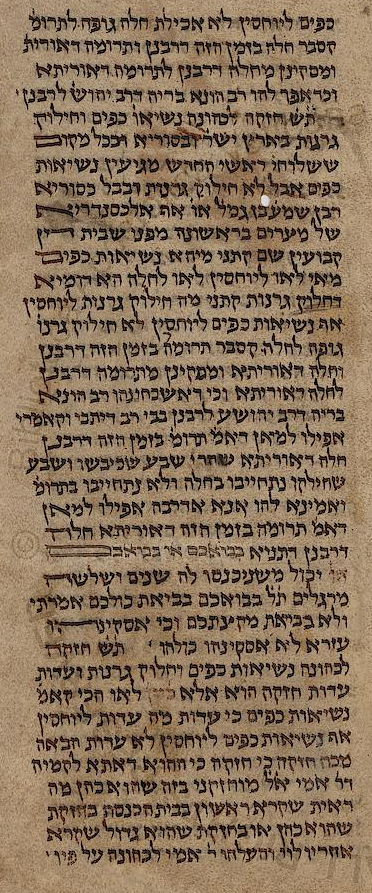 כפים ליוחסין לא אכילת חלה גופה לתרומ'
קסבר חלה בזמן הזה דרבנן ותרומה דאורית'
ומסקינן מחלה דרבנן לתרומה דאוריתא
וכדאפר להו רב הונא בריה דרב יהוש' לרבנן
תש חזקה לכהונה נשיאו' כפים וחילוק
גרנות בארץ ישר' ובסוריא ובכל מקום
ששלוחי ראשי החדש מגיעין נשיאות
כפים אבל לא חילוק גרנות ובבל כסוריא
רבן שמעבן גמל' או' אף אלכסנדריא
של מצרים בראשונה מפני שבית דין
קבועין שם קתני מיהא נשיאות כפים
מאי לאו ליוחסין לאו לחלה הא דומיא
דחלוק גרנות קתני מה חילוק גרנות ליוחסין
אף נשיאות כפים ליוחסין לא חילוק גרנו'
גופה לחלה קסבר תרומה בזמן הזה דרבנן
וחלה דאוריתא ומפקינן מתרומה דרבנן
לחלה דאוריתא וכי דאשכחונהו רב הונא
בריה דרב יהושע לרבנן בבי רב דיתבי וקאמרי
אפילו למאן דאמ' תרומ' בזמן הזה דרבנן
חלה דאוריתא שהרי שבע שכיבשו ושבע
שחילקו נתחייבו בחלה ולא נתחייבו בתרומ'
ואמינא להו אנא אדרבה אפילו למאן
דאמ' תרומה בזמן הזה דאוריתא חלה
דרבנן דתניא בבואכם או בבואכם
יכול משניכנסו לה שנים ושלשה
מרגלים תל בבואכם בביאת כולכם אמרתי
ולא בביאת מקצתכם וכי אסקינהו
עזרא לא אסקינהו כולהו תש חזקה
לכהונה נשיאות כפים וחלוק גרנות ועדות
עדות חזקה הוא אלא לאו הכי קאמ'
נשיאות כפים כי עדות מה עדות ליוחסין
אף נשיאות כפים ליוחסין לא עדות הבאה
מכח חזקה כי חזקה כי ההוא דאתא לקמיה
דר' אמי אל' מוחזקני בזה שהוא כהן מה
ראית שקרא ראשון בבית הכנסת בחזקת
שהוא כהן או בחזקת שהוא גדול שקרא
אחריו לוי והעלהו ר' אמי לכהונה על פיו